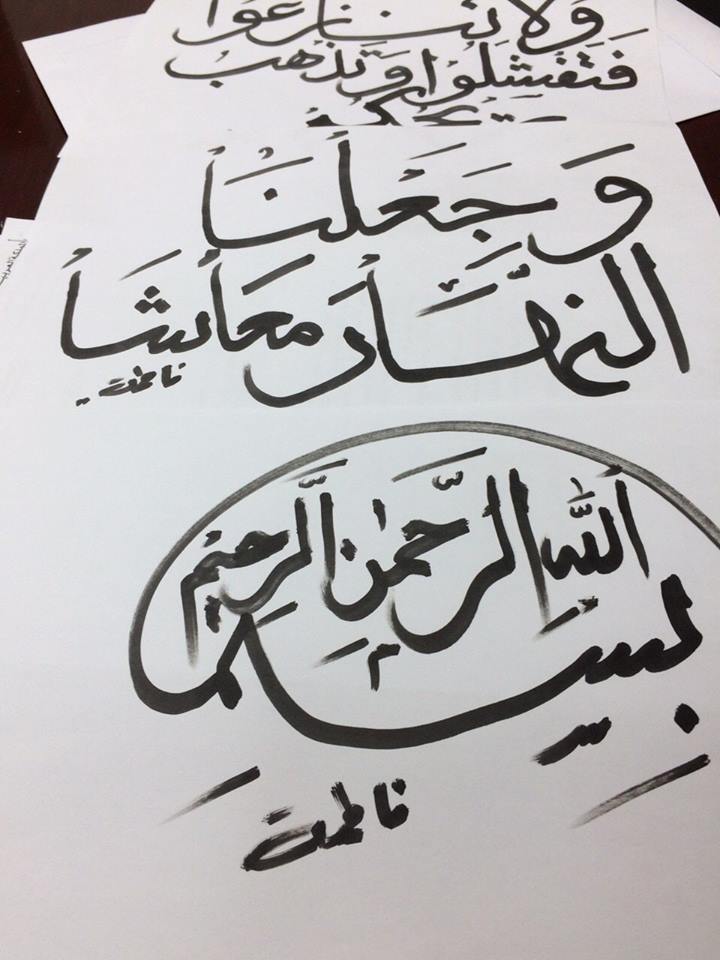 وَلَا تَنَازَعُوا
فَتَفْشَلُوا وَتَذْهَبَ
وَجَعَلْنَا
النَّهَارَ مَعَاشًا
فاطمة
بِسْمِ اللَّهِ الرَّحْمَٰنِ الرَّحِيمِ
فاطمة